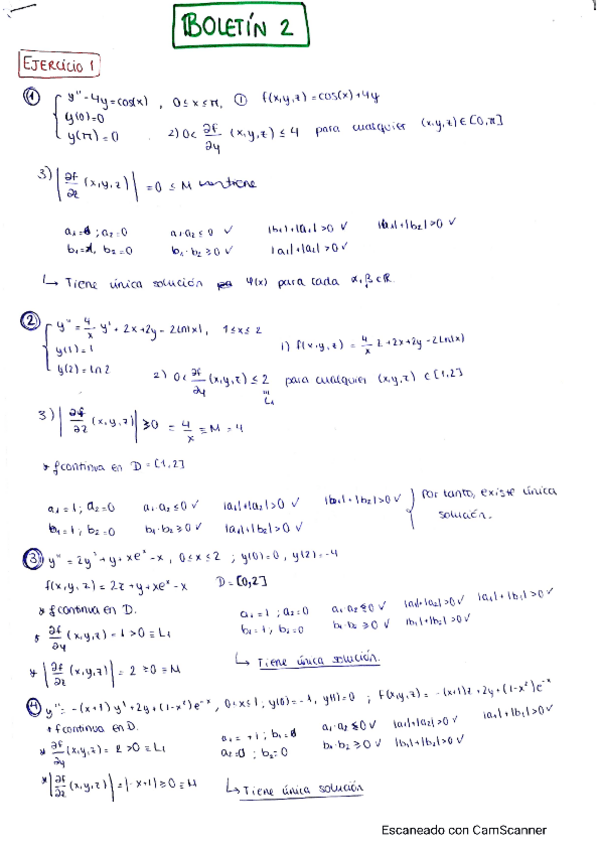 BOLETÍN 2
EJERCICIO 1
① { y'' - 4y = cos(x) , 0 ≤ x ≤ π, ① f(x,y,z) = cos(x) + 4y
y(0) = 0
y(π) = 0 2) 0 < ∂f/∂y (x,y,z) ≤ 4 para cualquier (x,y,z) ∈ [0,π]
3) |∂f/∂z (x,y,z)| = 0 ≤ M
a₁ = ; a₂ = 0 a₁a₂ ≤ 0 ✓ |b₁| + |a₁| > 0 ✓ |b₁| + |b₂| > 0 ✓
b₁ = 1, b₂ = 0 b₁·b₂ ≥ 0 ✓ |a₁| + |a₂| > 0 ✓
↳ Tiene única solución φ(x) para cada α, β ∈ ℝ.
② { y'' = 4/x y' + 2x + 2y - 2ln|x|, 1 ≤ x ≤ 2
y(1) = 1 1) f(x,y,z) = 4/x z + 2x + 2y - 2ln(x)
y(2) = ln 2 2) 0 < ∂f/∂y (x,y,z) ≤ 2 para cualquier (x,y,z) ∈ [1,2]
L₁
3) |∂f/∂z (x,y,z)| ≥ 0 = 4/x ≡ M = 4
* f continua en D = [1,2]
a₁ = 1 ; a₂ = 0 a₁·a₂ ≤ 0 ✓ |a₁| + |a₂| > 0 ✓ |b₁| + |b₂| > 0 ✓ } Por tanto, existe única
b₁ = 1 ; b₂ = 0 b₁·b₂ ≥ 0 ✓ |a₁| + |b₁| > 0 ✓ solución.
③ y'' = 2y' + y + xeˣ - x , 0 ≤ x ≤ 2 ; y(0) = 0 , y(2) = -4
f(x,y,z) = 2z + y + xeˣ - x D = [0,2]
* f continua en D. a₁ = 1 ; a₂ = 0 a₁·a₂ ≤ 0 ✓ |a₁| + |a₂| > 0 ✓ |a₁| + |b₁| > 0 ✓
* ∂f/∂y (x,y,z) = 1 > 0 ≡ L₁ b₁ = 1 ; b₂ = 0 b₁·b₂ ≥ 0 ✓ |b₁| + |b₂| > 0 ✓
* |∂f/∂z (x,y,z)| = 2 ≥ 0 ≡ M ↳ Tiene única solución.
④ y'' = -(x+1) y' + 2y + (1-x²)e⁻ˣ , 0 < x ≤ 1 , y(0) = -1 , y(1) = 0 ; f(x,y,z) = -(x+1)z + 2y + (1-x²)e⁻ˣ
* f continua en D. a₁ = +1 ; b₁ = a₁·a₂ ≤ 0 ✓ |a₁| + |a₂| > 0 ✓ |a₁| + |b₁| > 0 ✓
* ∂f/∂y (x,y,z) = 2 > 0 ≡ L₁ a₂ = 0 ; b₂ = 0 b₁·b₂ ≥ 0 ✓ |b₁| + |b₂| > 0 ✓
* |∂f/∂z (x,y,z)| = |-x+1| ≥ 0 ≡ M ↳ Tiene única solución
Escaneado con CamScanner